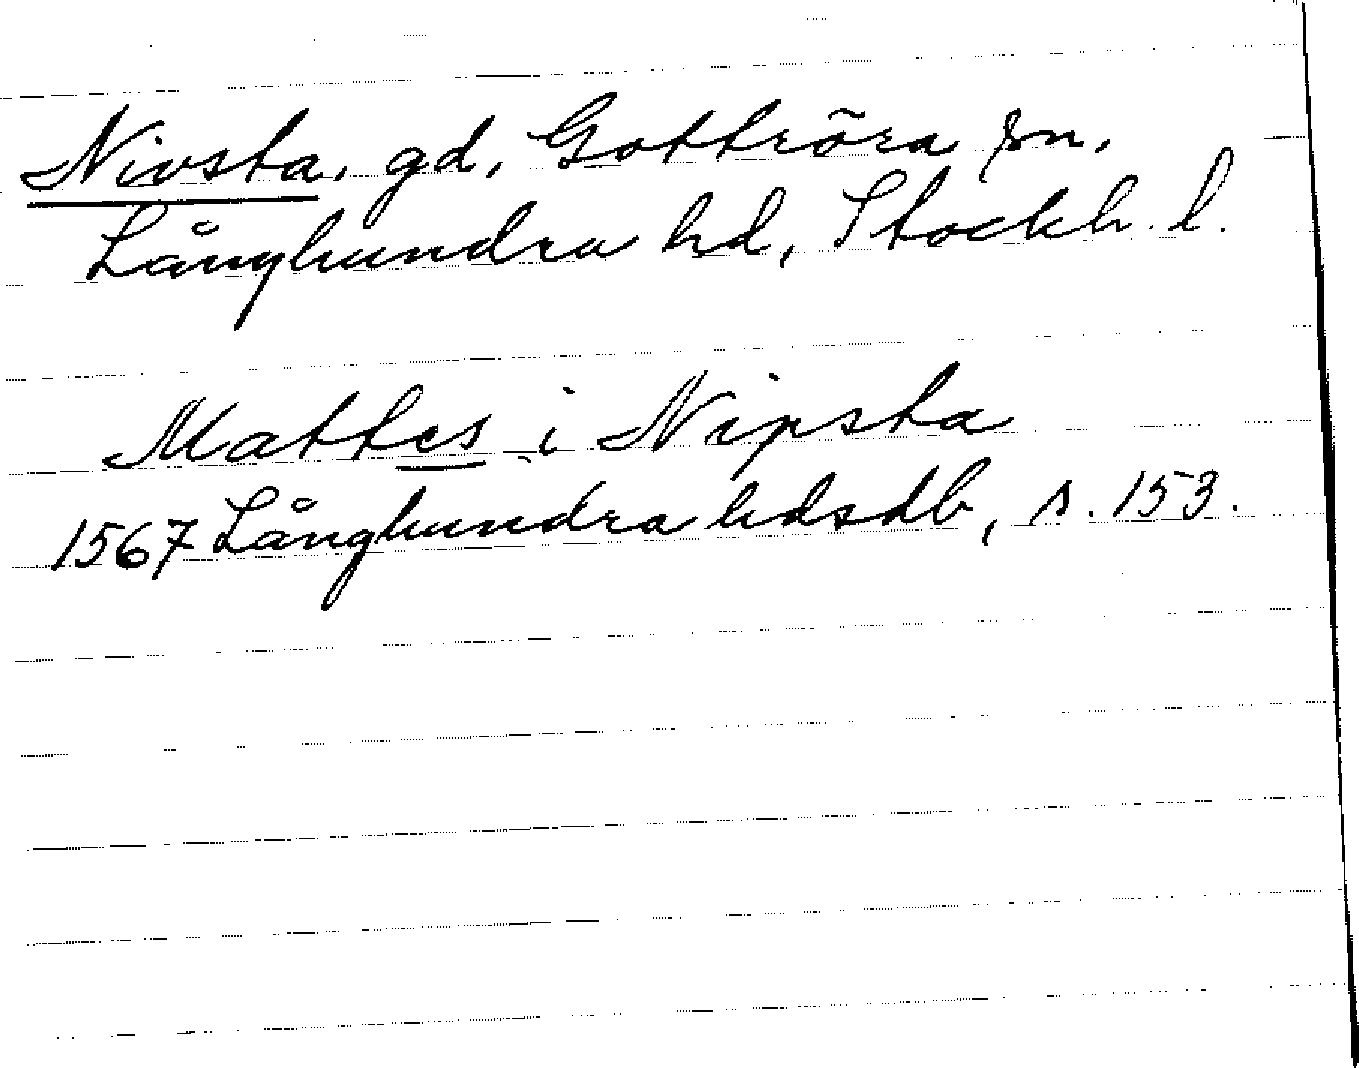 Nivsta, gd, Gottröra sn,
Långhundra hd, Stockh. l.
Mattes i Nipsta
1567 Långhundra hdsdb, s. 153.